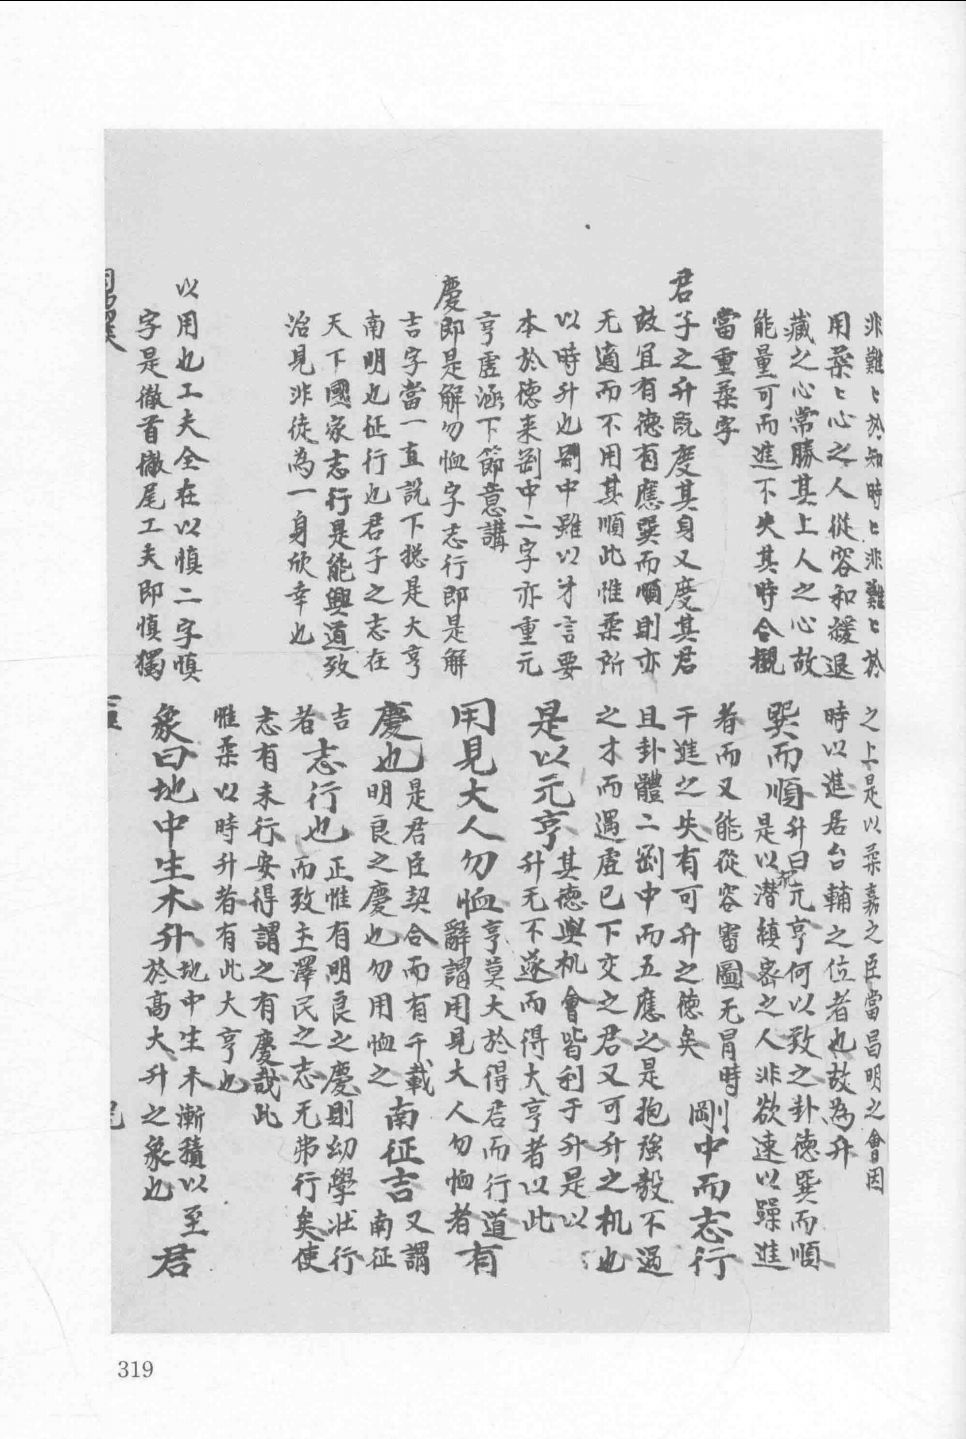 非難〻於知時〻非難〻於
用柔〻心之人從容和緩退
藏之心常勝其上人之心故
能量可而進不失其時合觀
當重柔字
君子之升既度其身又度其君
故宜有德有應巽而順則亦
无適而不用其順此惟柔所
以時升也剛中雖以才言要
本於德来剛中二字亦重元
亨虛涵下節意講
慶即是解勿恤字志行即是解
吉字當一直説下揔是大亨
南明也征行也君子之志在
天下國家志行是能興道致
治見非徒為一身欣幸也
以用也工夫全在以慎二字慎
字是徹首徹尾工夫即慎獨
之上是以柔嘉之臣當昌明之會因
時以進居台輔之位者也故為升
巽而順升曰元亨何以致之卦德巽而順
是以潛縝宻之人非欲速以躁進
者而又能從容審圖无冐時
干進之失有可升之德矣剛中而志行
且卦體二剛中而五應之是抱強毅不過
之才而遇虛已下交之君又可升之机也
是以元亨其德與机會皆利于升是以
升无不遂而得大亨者以此
用見大人勿恤亨莫大於得君而行道有
辭謂用見大人勿恤者
慶也是君臣契合而有千載又謂
明良之慶也勿用恤之南征吉南征
吉志行也正惟有明良之慶則幼學壯行
若而致主澤民之志无弗行矣使
志有未行安得謂之有慶哉此
惟柔以時升者有此大亨也
象曰地中生木升地中生木漸積以至君
於高大升之象也